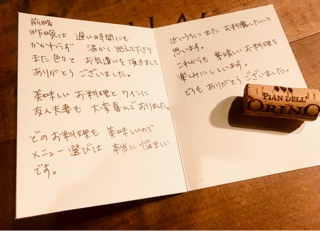 前略
昨晩は 遅い時間にも
かかわらず 温かく迎え下さり
また色々と お気遣いを頂きまして
ありがとう ございました。
美味しい お料理と ワインに
友人夫妻も 大変喜んでおりました。
どのお料理も 美味しいので
メニュー選びは 本当に悩ましい
です。
近いうちにまた お邪魔したいと
思います。
これからも 素晴しい お料理を
楽しみにしています。
どうも ありがとう ございました。
PIAN DELL'
ORINO